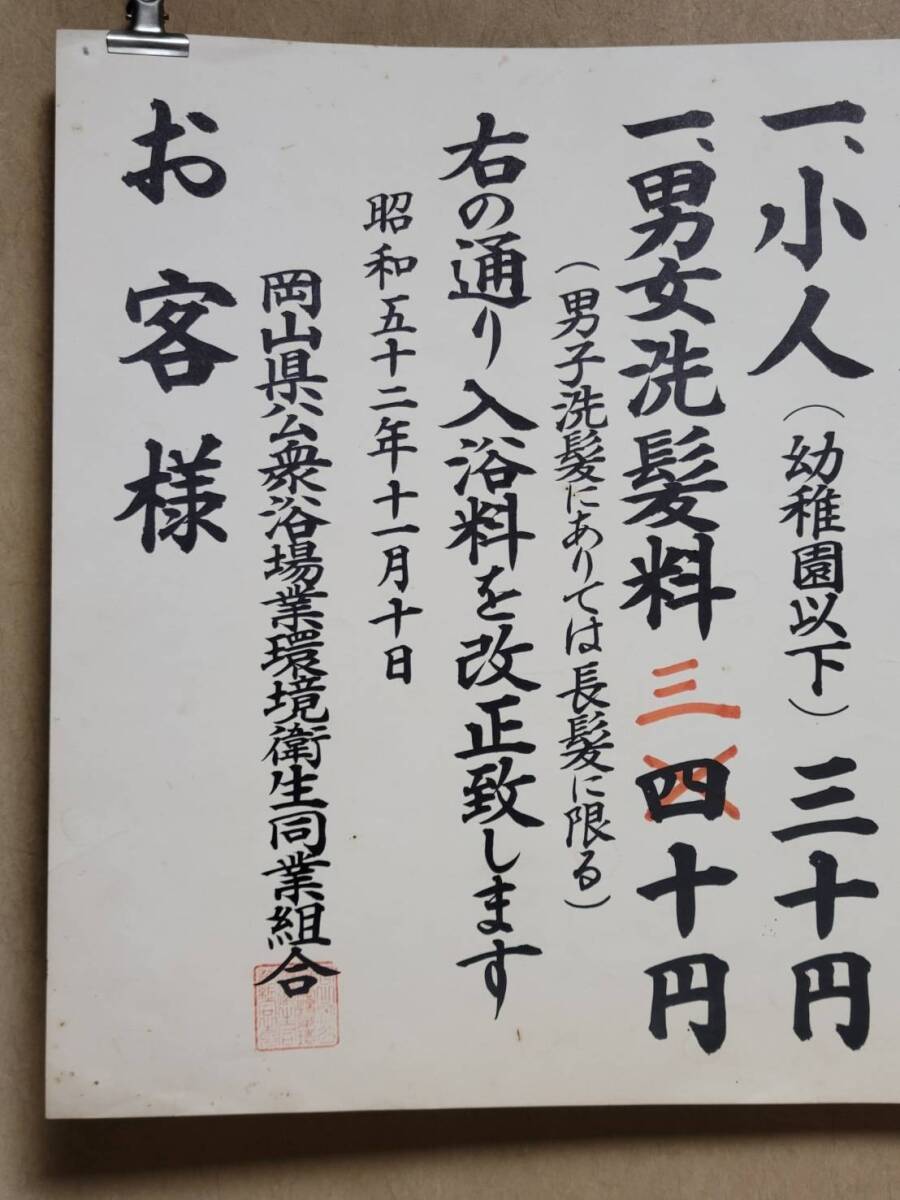 一、小人(幼稚園以下)三十円
一、男女洗髪料 三四十円
(男子洗髪にありては長髪に限る)
右の通り入浴料を改正致します
昭和五十二年十一月十日
岡山県公衆浴場業環境衛生同業組合
お客様